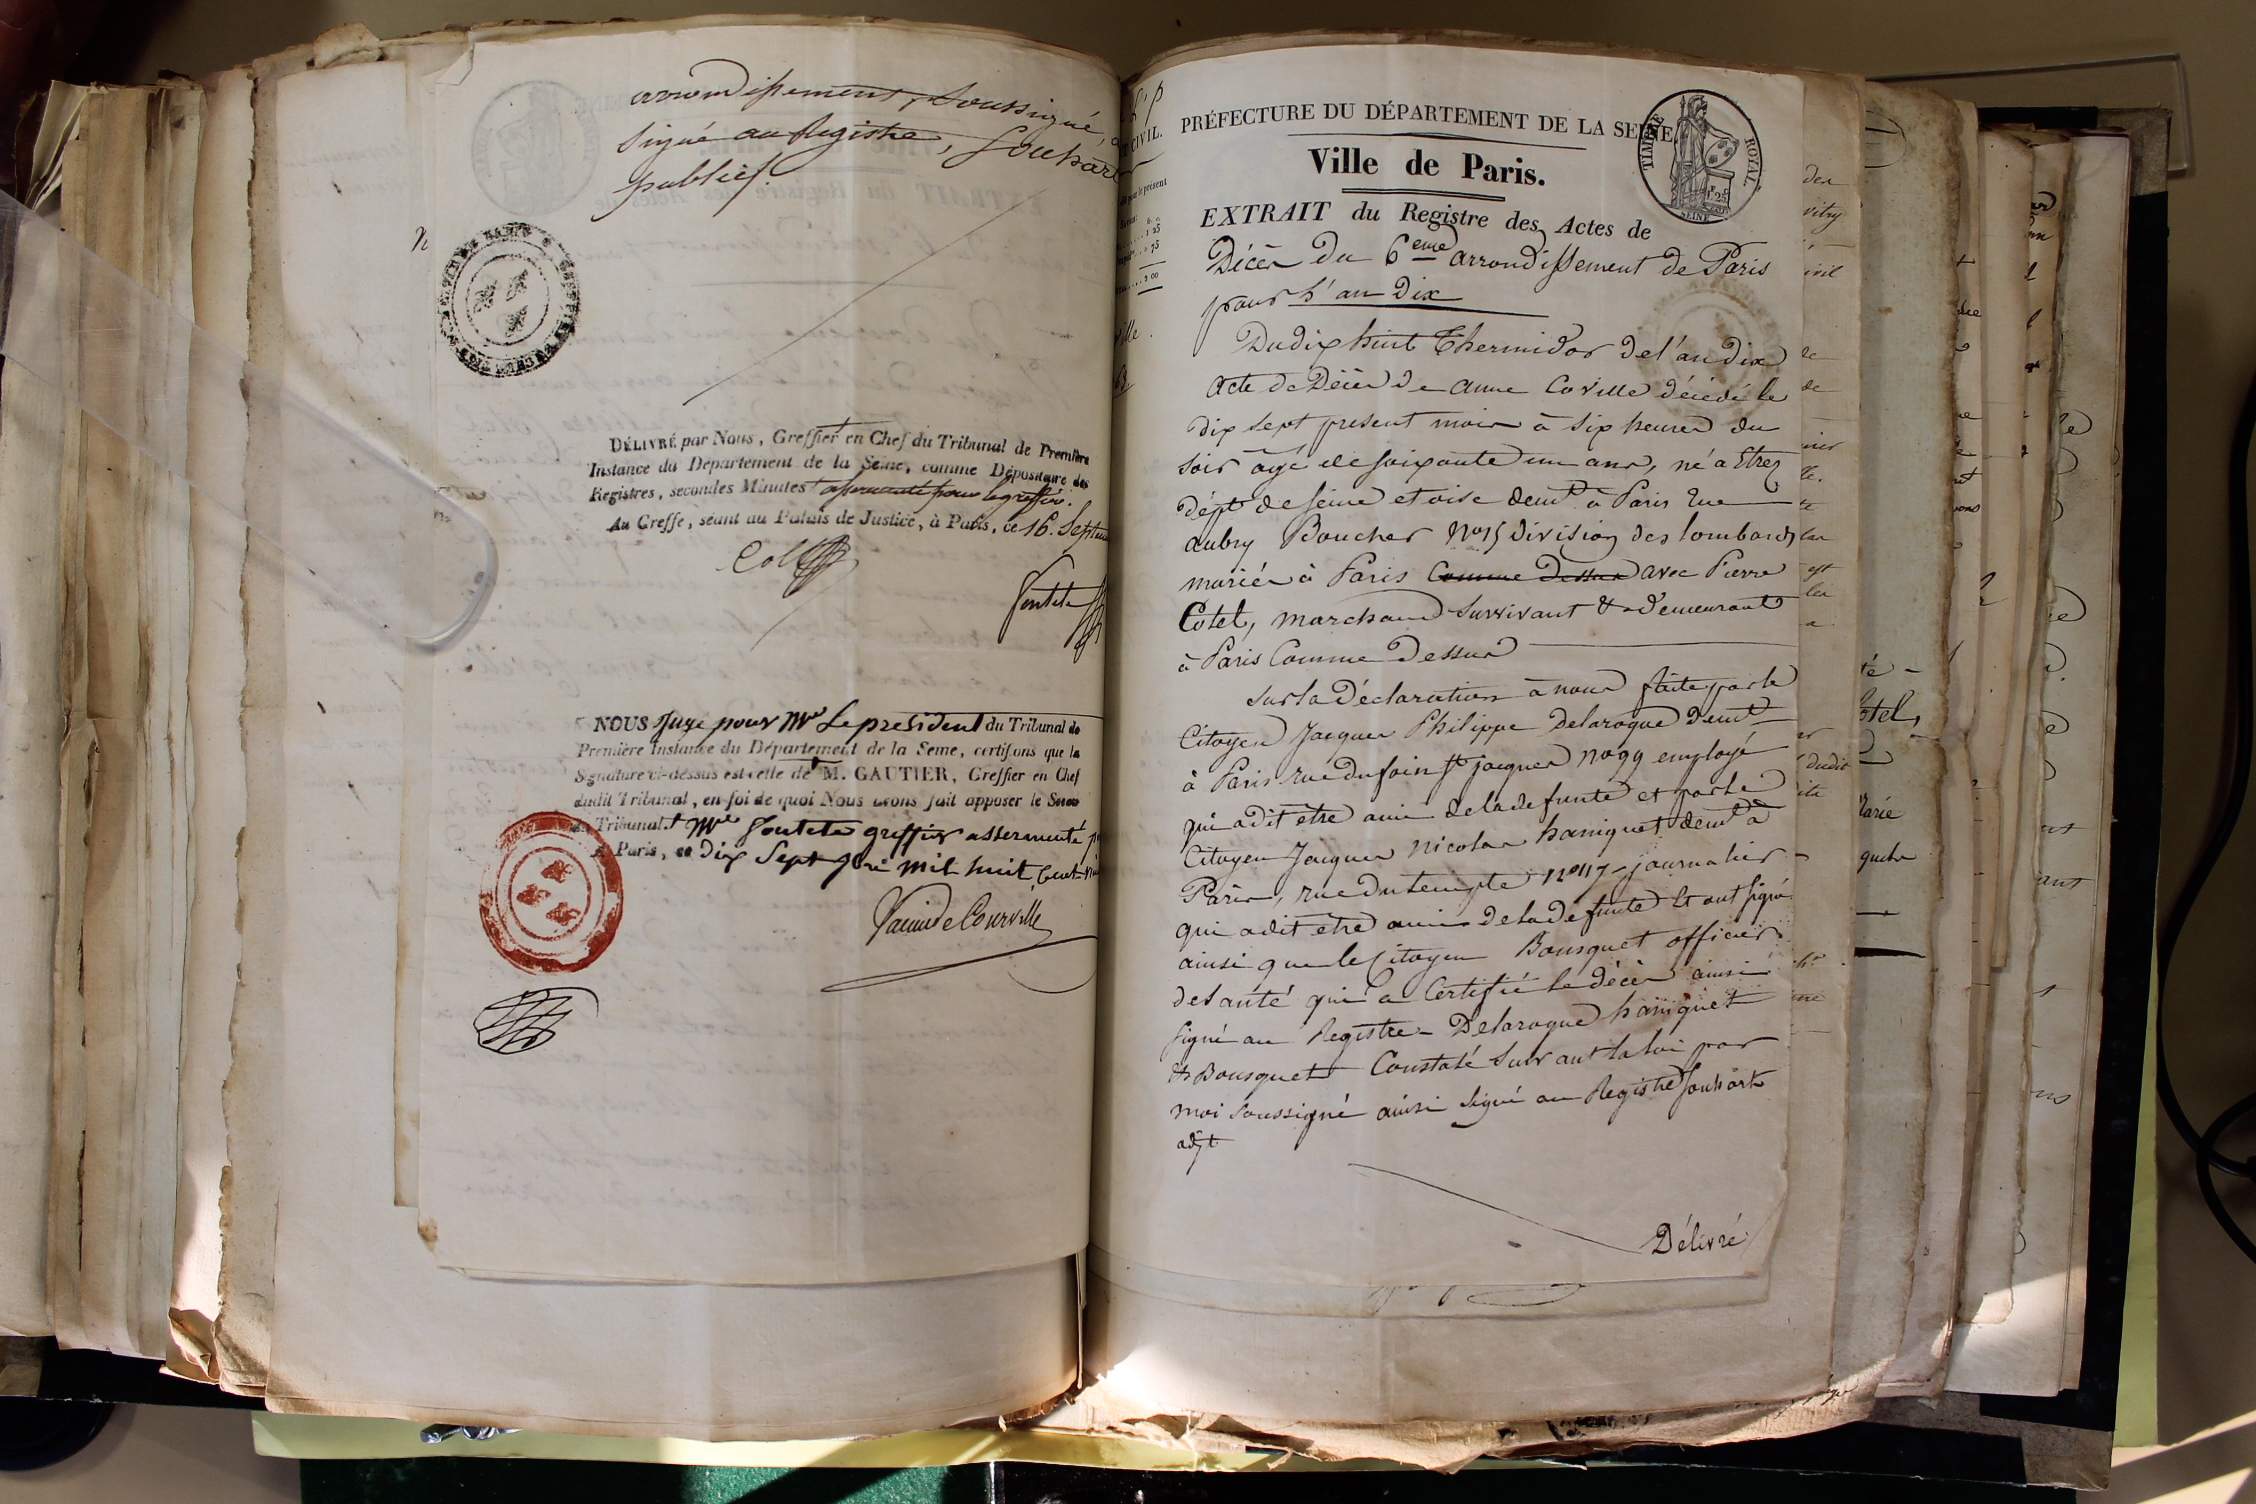 arrondissement, soussigné,
signé au Registre, Jouhart
publics.
DÉLIVRÉ par Nous, Greffier en Chef du Tribunal de Première
Instance du Département de la Seine, comme Dépositaire des
Registres, secondes Minutes
Au Greffe, séant au Palais de Justice, à Paris, ce 16. Septem
NOUS Juge pour Mr Le president du Tribunal de
Première Instance du Département de la Seine, certifions que la
Signature ci-dessus est celle de M. GAUTIER, Greffier en Chef
dudit Tribunal, en foi de quoi Nous avons fait apposer le Sceau
du Tribunal. greffier assermenté
A Paris, ce dix Sept mil huit cent
CIVIL.
pour le présent
PRÉFECTURE DU DÉPARTEMENT DE LA SEINE
TIMBRE ROYAL
1F 25C
SEINE
Ville de Paris.
EXTRAIT du Registre des Actes de
Décès du 6eme arrondissement de Paris
pour L'an Dix
Du dix huit Thermidor de l'an dix
acte de Décès de anne Coville décédé le
dix sept present mois à six heures du
soir âgé de soixante un ans, né a Etrez
dépt de seine et oise demt à Paris rue
aubry Boucher No 15 division des lombards
mariée à Paris Comme dessus avec Pierre
Cotel, marchand survivant & demeurant
à Paris Comme dessus
sur la Déclaration à nous faite par le
Citoyen Jacques Philippe Delaroque demt
à Paris rue du foin st jacques No 99 employé
qui a dit être ami de la defunte et par le
Citoyen Jacques Nicolas haniquet demt à
Paris, rue du temple No 117 journalier
qui a dit etre amis de la defunte Et ont signé
ainsi que le Citoyen Bousquet officier
de santé qui a Certifié le décès ainsi
signé au Registre Delaroque haniquet
& Bousquet Constaté suivant la loi par
moi soussigné ainsi signé au Registre Jouhart
adjt
Délivré